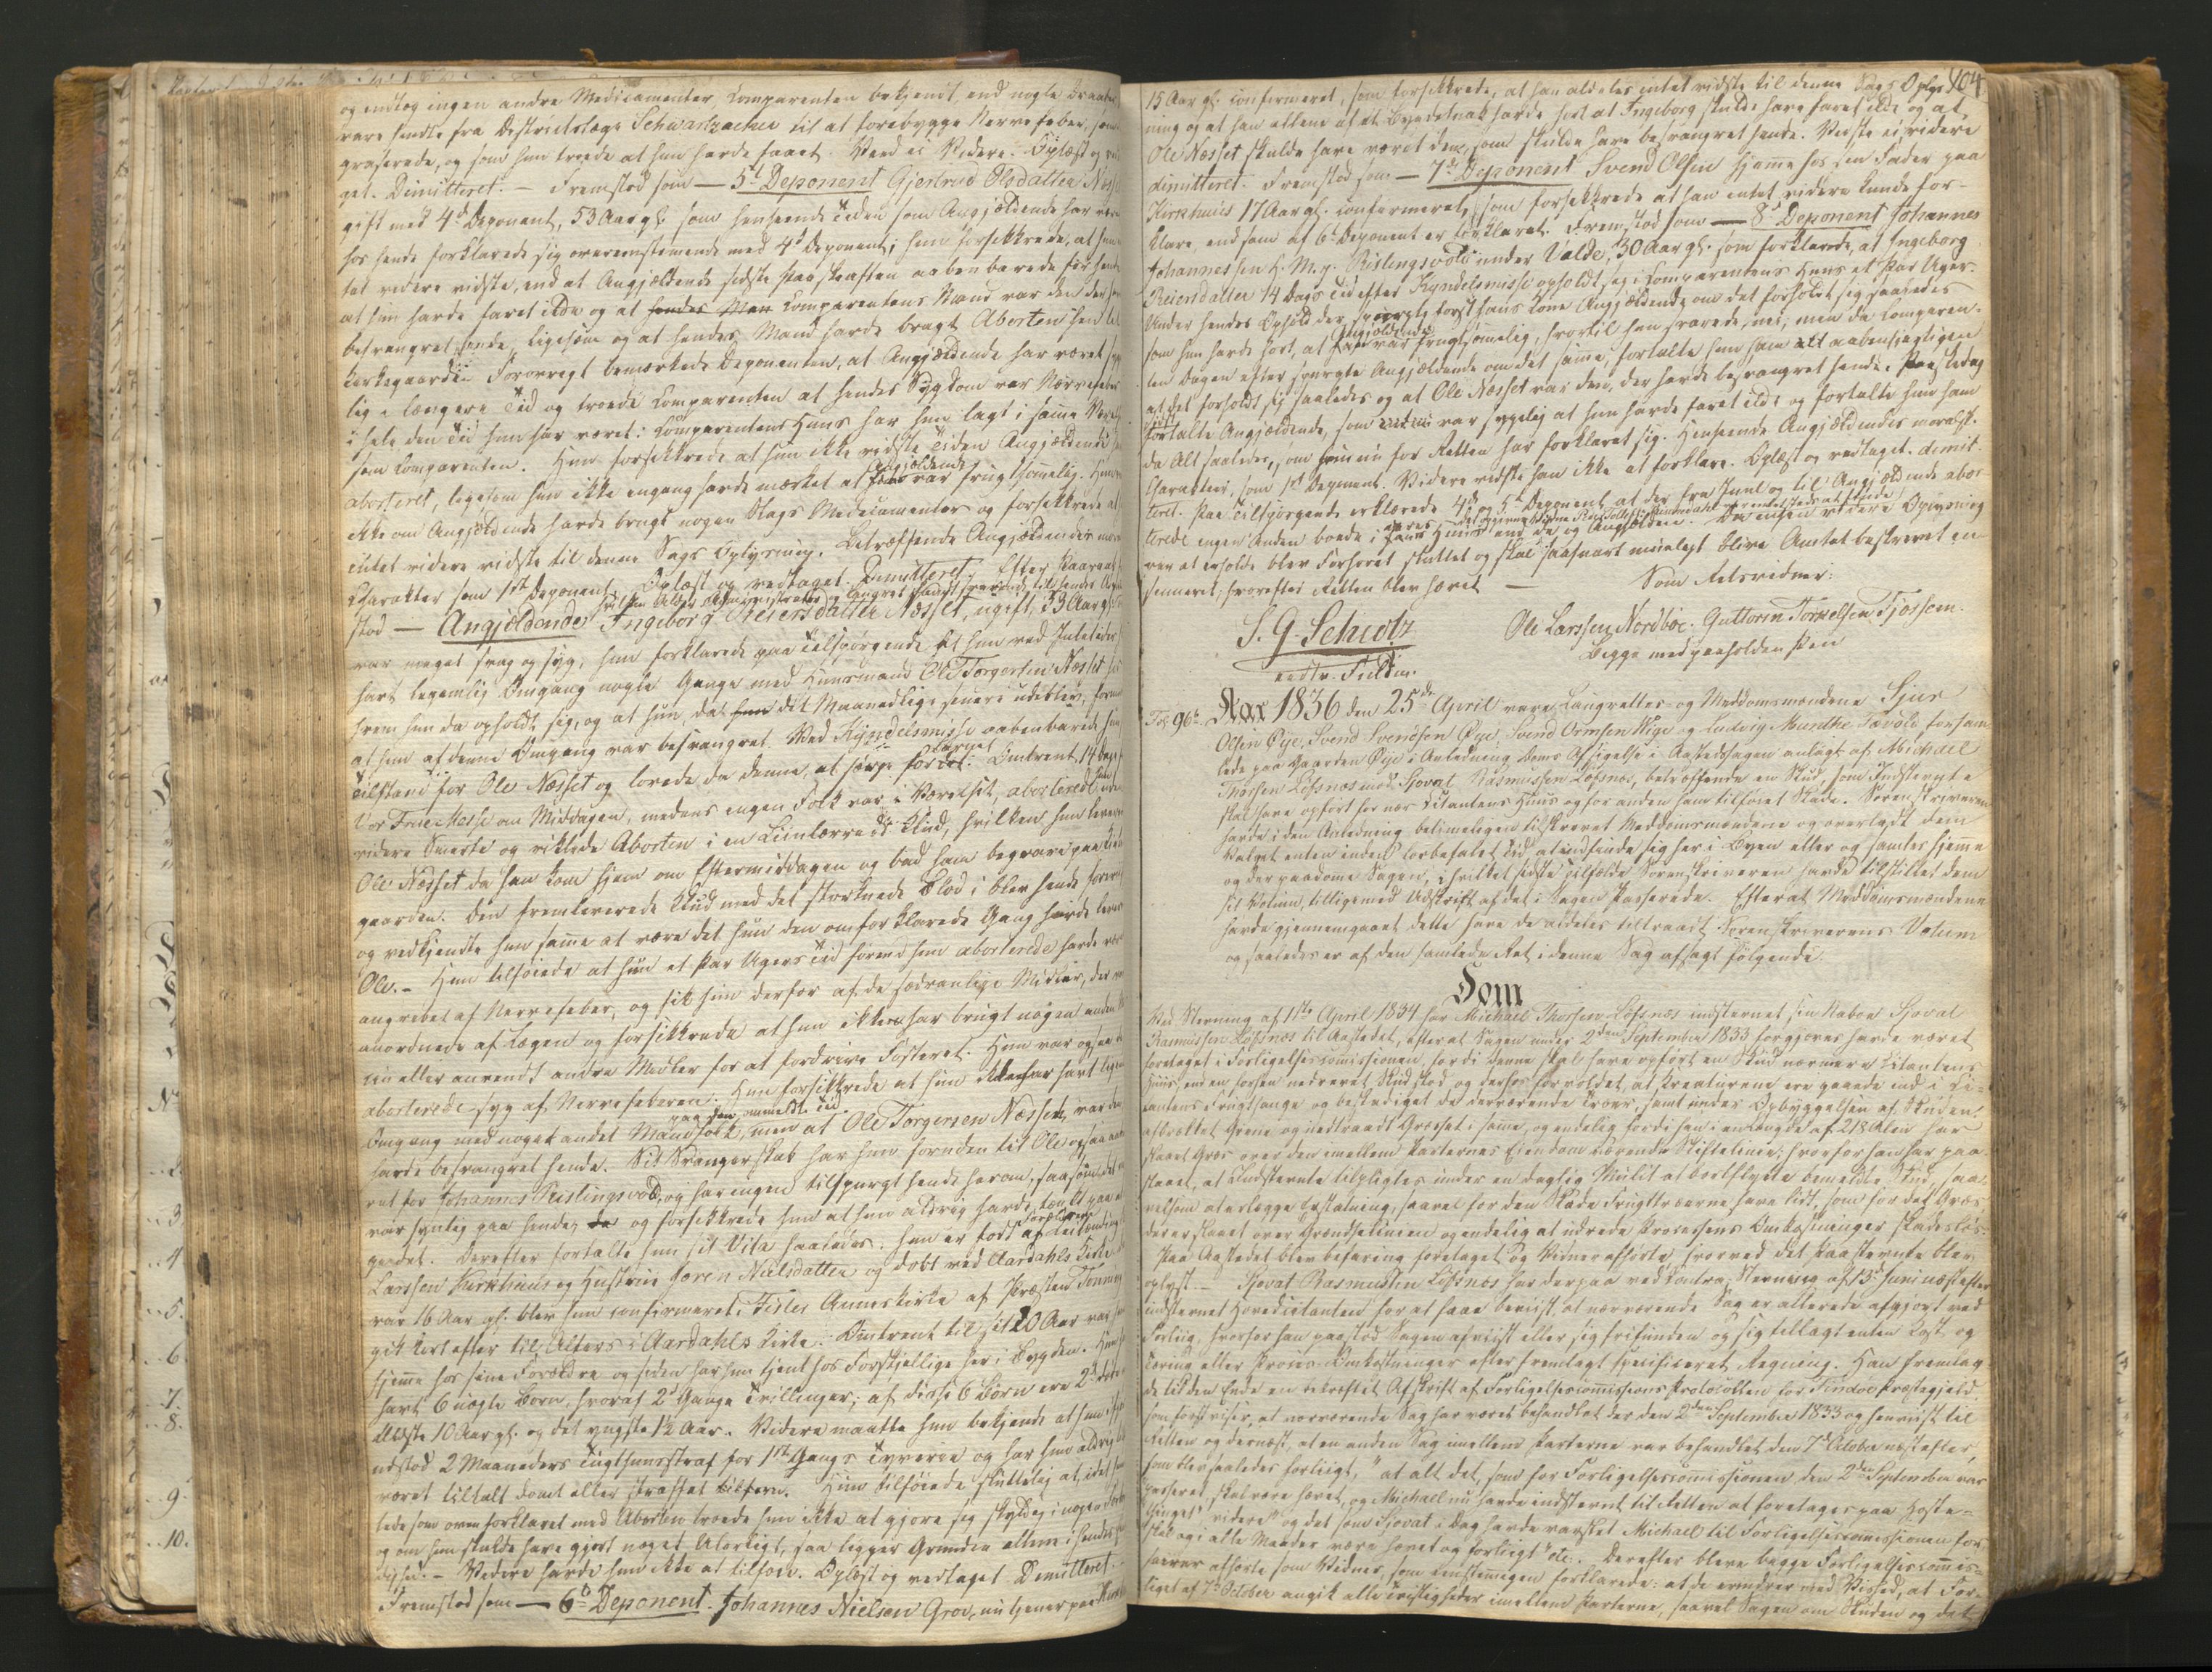 og indtog ingen andre Medicamenter, Comparenten bekjendt, end nogle Draaber,
vare sendte fra Destrictslæge Schwartzacher til at forebygge Nervefeber, som
graserede, og som hun troede at hun havde faaet. Veed ei Videre. Oplæst og ved-
get. Dimitteret. — Fremstod som — 5te Deponent Gjertrud Olsdatter Næss
gift med 4de Deponent, 53 Aar gl. som henseende Tiden som Angjældende har været
hos hende forklarede sig overeensstemmende med 4de Deponent; hun forsikkrede, at hun
tet videre vidste, end at Angjældende sidste Paaskeaften aabenbarede for hende
at hun havde faret ilde og at hendes Man Comparentens Mand var den der har
besvangret hende, ligesom og at hendes Mand havde bragt Aborten hen til
Kirkegaarden. Forøvrigt bemærkede Deponenten, at Angjældende har været syge-
lig i længere Tid og troede Comparenten at hendes Sygdom var Nervefeber
i hele den Tid hun har været i Comparentens Huus har hun lagt i samme Værelse
som Comparenten. Hun forsikkrede at hun ikke vidste Tiden Angjældende
aborteret, ligesom hun ikke engang havde mærket at Angjældende var frugtsommelig. Hun
ikke om Angjældende havde brugt nogen Slags Medicamenter og forsikkrede at
intet videre vidste til denne Sags Oplysning. Betræffende Angjældendes mor
Charakter som 1ste Deponent. Oplæst og vedtaget. Dimitteret. Efter Paaraab
stod — Angjældende Ingeborg Reiersdatter Næsset, ugift, 33 Aar gl.
var meget svag og syg, hun forklarede paa Tilspørgende at hun ved Juletider
havt legemlig Omgang nogle Gange med Huusmand Ole Torgersen Næsset hos
hvem hun da opholdt sig, og at hun, da hun det Maanedlige senere udeblev, fornam
at hun af denne Omgang var besvangret. Ved Kyndelsmisse aabenbarede hun
Tilstand for Ole Næsset og lovede da denne, at sørge for Barnet. Omtrent 14 Dage
Vor Frue Messe om Middagen, medens ingen Folk var i Værelset, aborterede hun uden
videre Smerte og viklede Aborten i en Liinlærreds Klud, hvilken hun leverede
Ole Næsset da han kom hjem om Eftermiddagen og bad ham begrave paa Kirke-
gaarden. Den fremleverede Klud med det størknede Blod i blev hende foreviist
og vedkjendte hun samme at være det hun den omforklarede Gang havde leveret
Ole. – Hun tilføiede at hun et Par Ugers Tid førend hun aborterede havde været
angrebet af Nervefeber, og fik hun derfor af de sædvanlige Midler, der var
anordnede af Lægen og forsikkrede at hun ikke har brugt nogen anden
ciin eller anvendt andre Midler for at fordrive Fosteret. Hun var ogsaa da
aborterede syg af Nervefeberen. Hun forsikkrede at hun ikke har havt legem
Omgang med noget andet Mandfolk paa den ommeldte Tid, men at Ole Torgersen Næsset var den
havde besvangret hende. Sit Svangerskab har hun foruden til Ole ogsaa aaben-
ret for Johannes Ristingsvold, og har ingen tilspurgt hende herom, saasom det ei
var synlig paa hende, da og forsikkrede hun at hun aldrig havde tænkt paa at
gredet. Derefter fortalte hun sit Vita saaledes: hun er født af Forældrene Reier
Larssen Kirkhuus og Hustrue Søren Nielsdatter og døbt ved Aardahls Kirke da
var 16 Aar gl. blev hun confirmeret i Fister Annexkirke af Præsten Tønning
gik kort efter til Alters i Aardahls Kirke. Omtrent til sit 20 Aar var hun
hjemme hos sine Forældre og siden har hun tjent hos Forskjellige her i Bygden. Hun
havt 6 uægte Børn, hvoraf 2 Gange Tvillinger; af disse 6 Børn ere 2de døde
ældste 10 Aar gl. og det yngste 1½ Aar. Videre maatte hun bekjende at hun
udstod 2 Maaneders Tugthuusstraf for 1ste Gangs Tyverie og har hun aldrig
været tiltalt dømt eller straffet tilforn. Hun tilføiede sluttelig at, idet hun
lede som oven forklaret med Aborten troede hun ikke at gjøre sig skyldig i nogen
og om hun skulde have gjort noget Ulovligt, saa ligger Grunden allene i hendes
dighed. – Videre havde hun ikke at tilføie. Oplæst og vedtaget. Dimitteret.
Fremstod som — 6te Deponent. Johannes Nielsen Groe, nu tjener paa Kirk
104
15 Aar gl. confirmeret, som forsikkrede, at han aldeles intet vidste til denne Sags Oplys-
ning og at han allene af et Bygdesnak havde hørt at Ingeborg skulde have faret ilde og at
Ole Næsset skulde have været den, som skulde have besvangret hende. Vidste ei videre
dimitteret. Fremstod som — 7de Deponent Svend Olsen hjemme hos sin Fader paa
Kirkhuus 17 Aar gl. confirmeret, som forsikkrede at han intet videre kunde for-
klare end som af 6te Deponent er forklaret. Fremstod som — 8de Deponent Johannes
Johannessen H. M. p. Ristingsvold under Valde, 30 Aar gl. som forklarede, at Ingeborg
Reiersdatter 14 Dags Tid efter Kyndelsmisse opholdt sig i Comparentens Huus et Par Uger.
Under hendes Ophold der spurgte først hans Kone Angjældende om det forholdt sig saaledes
som hun havde hørt, at Angjældende var frugtsommelig, hvortil hun svarede, nei; men da Comparen-
ten Dagen efter spurgte Angjældende om det samme, fortalte hun ham alt aabenhjertigen
at det forholdt sig saaledes og at Ole Næsset var den, der havde besvangret hende. Paaskedag
fortalte Angjældende, som var sygelig at hun havde faret ilde og fortalte hun ham
da Alt saaledes, som hun nu for Retten har forklaret sig. Henseende Angjældendes moralsk-
Charakteer, som 1ste Deponent. Videre vidste han ikke at forklare. Oplæst og vedtaget. dimit-
teret. Paa Tilspørgende erklærede 4de og 5te Deponent at der fra Juul og til Angjældende abor-
terede ingen Anden boede i deres Huus end de og Angjældende. Da ingen videre Oplysning
var at erholde blev Forhøret sluttet og skal saasnart mueligt blive Amtet beskrevet til-
sinneret, hvorefter Retten blev hævet —
Som Retsvidner:
S. G. Schiøtz
Ole Larssen Nordbøe. Guttorm Torkelsen Tjøssem.
Begge med paaholden Pen
Fol 96b.
Aar 1836 den 25de April vare Laugrettes- og Meddomsmændene Sjur
Olsen Øye, Svend Svendsen Øye, Svend Ormsen Wige og Ludvig Munthe Tævold, forsam-
lede paa Gaarden Øye i Anledning Doms Afsigelse i Aastedssagen anlagt af Michael
Thorsen Løfsnæs mod Sjovat Rasmussen Løfsnæs, betræffende en Skud, som Indstevnte
skal have opført for nær Citantens Huus og for anden ham tilføiet Skade. Sorenskriveren
havde i den Anledning betimeligen tilskrevet Meddomsmændene og overladt dem
Valget enten inden lovbefalet Tid at indfinde sig her i Byen eller og samles hjemme
og der paadømme Sagen, i hvilket sidste Tilfælde Sorenskriveren havde tilstillet dem
sit Votum, tilligemed Udskrift af det i Sagen Passerede. Efterat Meddomsmændene
havde gjennemgaaet dette have de aldeles tiltraadt Sorenskriverens Votum
og saaledes er af den samlede Ret i denne Sag afsagt følgende
Dom
Ved Stevning af 1ste April 1834 har Michael Thorsen Løfsnæs indstevnet sin Naboe Sjovat
Rasmussen Løfsnæs til Aastedet, efterat Sagen under 2den September 1833 forgjæves havde været
foretaget i Forligelsescommissionen, fordi denne skal have opført en Skud nærmere Citantens
Huus, end en forhen nedrevet Skud stod og derhos forvoldet, at Kreaturene ere gaaede ind i Ci-
tantens Frugthauge og beskadiget de derværende Træer, samt under Opbyggelsen af Skuden
afbrækket Grene og nedtraadt Græsset i samme, og endelig fordi han i en Længde af 218 Alen har
slaaet Græs over den imellem Parternes Eiendom værende Skiftelinie; hvorfor han har paa-
staaet, at Indstevnte tilpligtes under en daglig Mulct at bortflytte bemeldte Skud, saa-
velsom at erlægge Erstatning, saavel for den Skade Frugttræerne have lidt, som for det Græs
der er slaaet over Grændselinien og endelig at udrede Processens Omkostninger skadesløs.
Paa Aastedet blev Besaring foretaget og Vidner afhørte, hvorved det Paastevnte blev
oplyst. — Sjovat Rasmussen Løfsnæs har derpaa ved Contra-Stevning af 13de Juni næstefter
indstevnet Hovedcitanten for at faae beviist, at nærværende Sag er allerede afgjort ved
Forliig, hvorfor han paastod Sagen afviist eller sig frifunden og sig tillagt enten Kost og
Tæring eller Proces-Omkostninger efter fremlagt specificeret Regning. Han fremlag-
de til den Ende en bekræftet Afskrift af Forligelsescommissions Protocollen for Findøe Præstegjeld
som først viser, at nærværende Sag har været behandlet der den 2den September 1833 og henviist til
Retten og dernæst, at en anden Sag imellem Parterne var behandlet den 7de October næstefter,
som blev saaledes forliigt, "at alt det, som for Forligelsescommissionen den 2den September var
passeret, skal være hævet, og Michael nu havde indstevnt til Retten at foretages paa Høste-
thinget videre" og det som Sjovat i Dag havde varslet Michael til Forligelsescommissionen for
skal og i alle Maader være hævet og forliigt" etc. Derefter bleve begge Forligelsescommis-
sairer afhørte som Vidner, som eenstemmigen forklarede: at de erindrer med Vished, at For-
liget af 7de October angik alle Tvistigheder imellem Parterne, saavel Sagen om Skuden og det